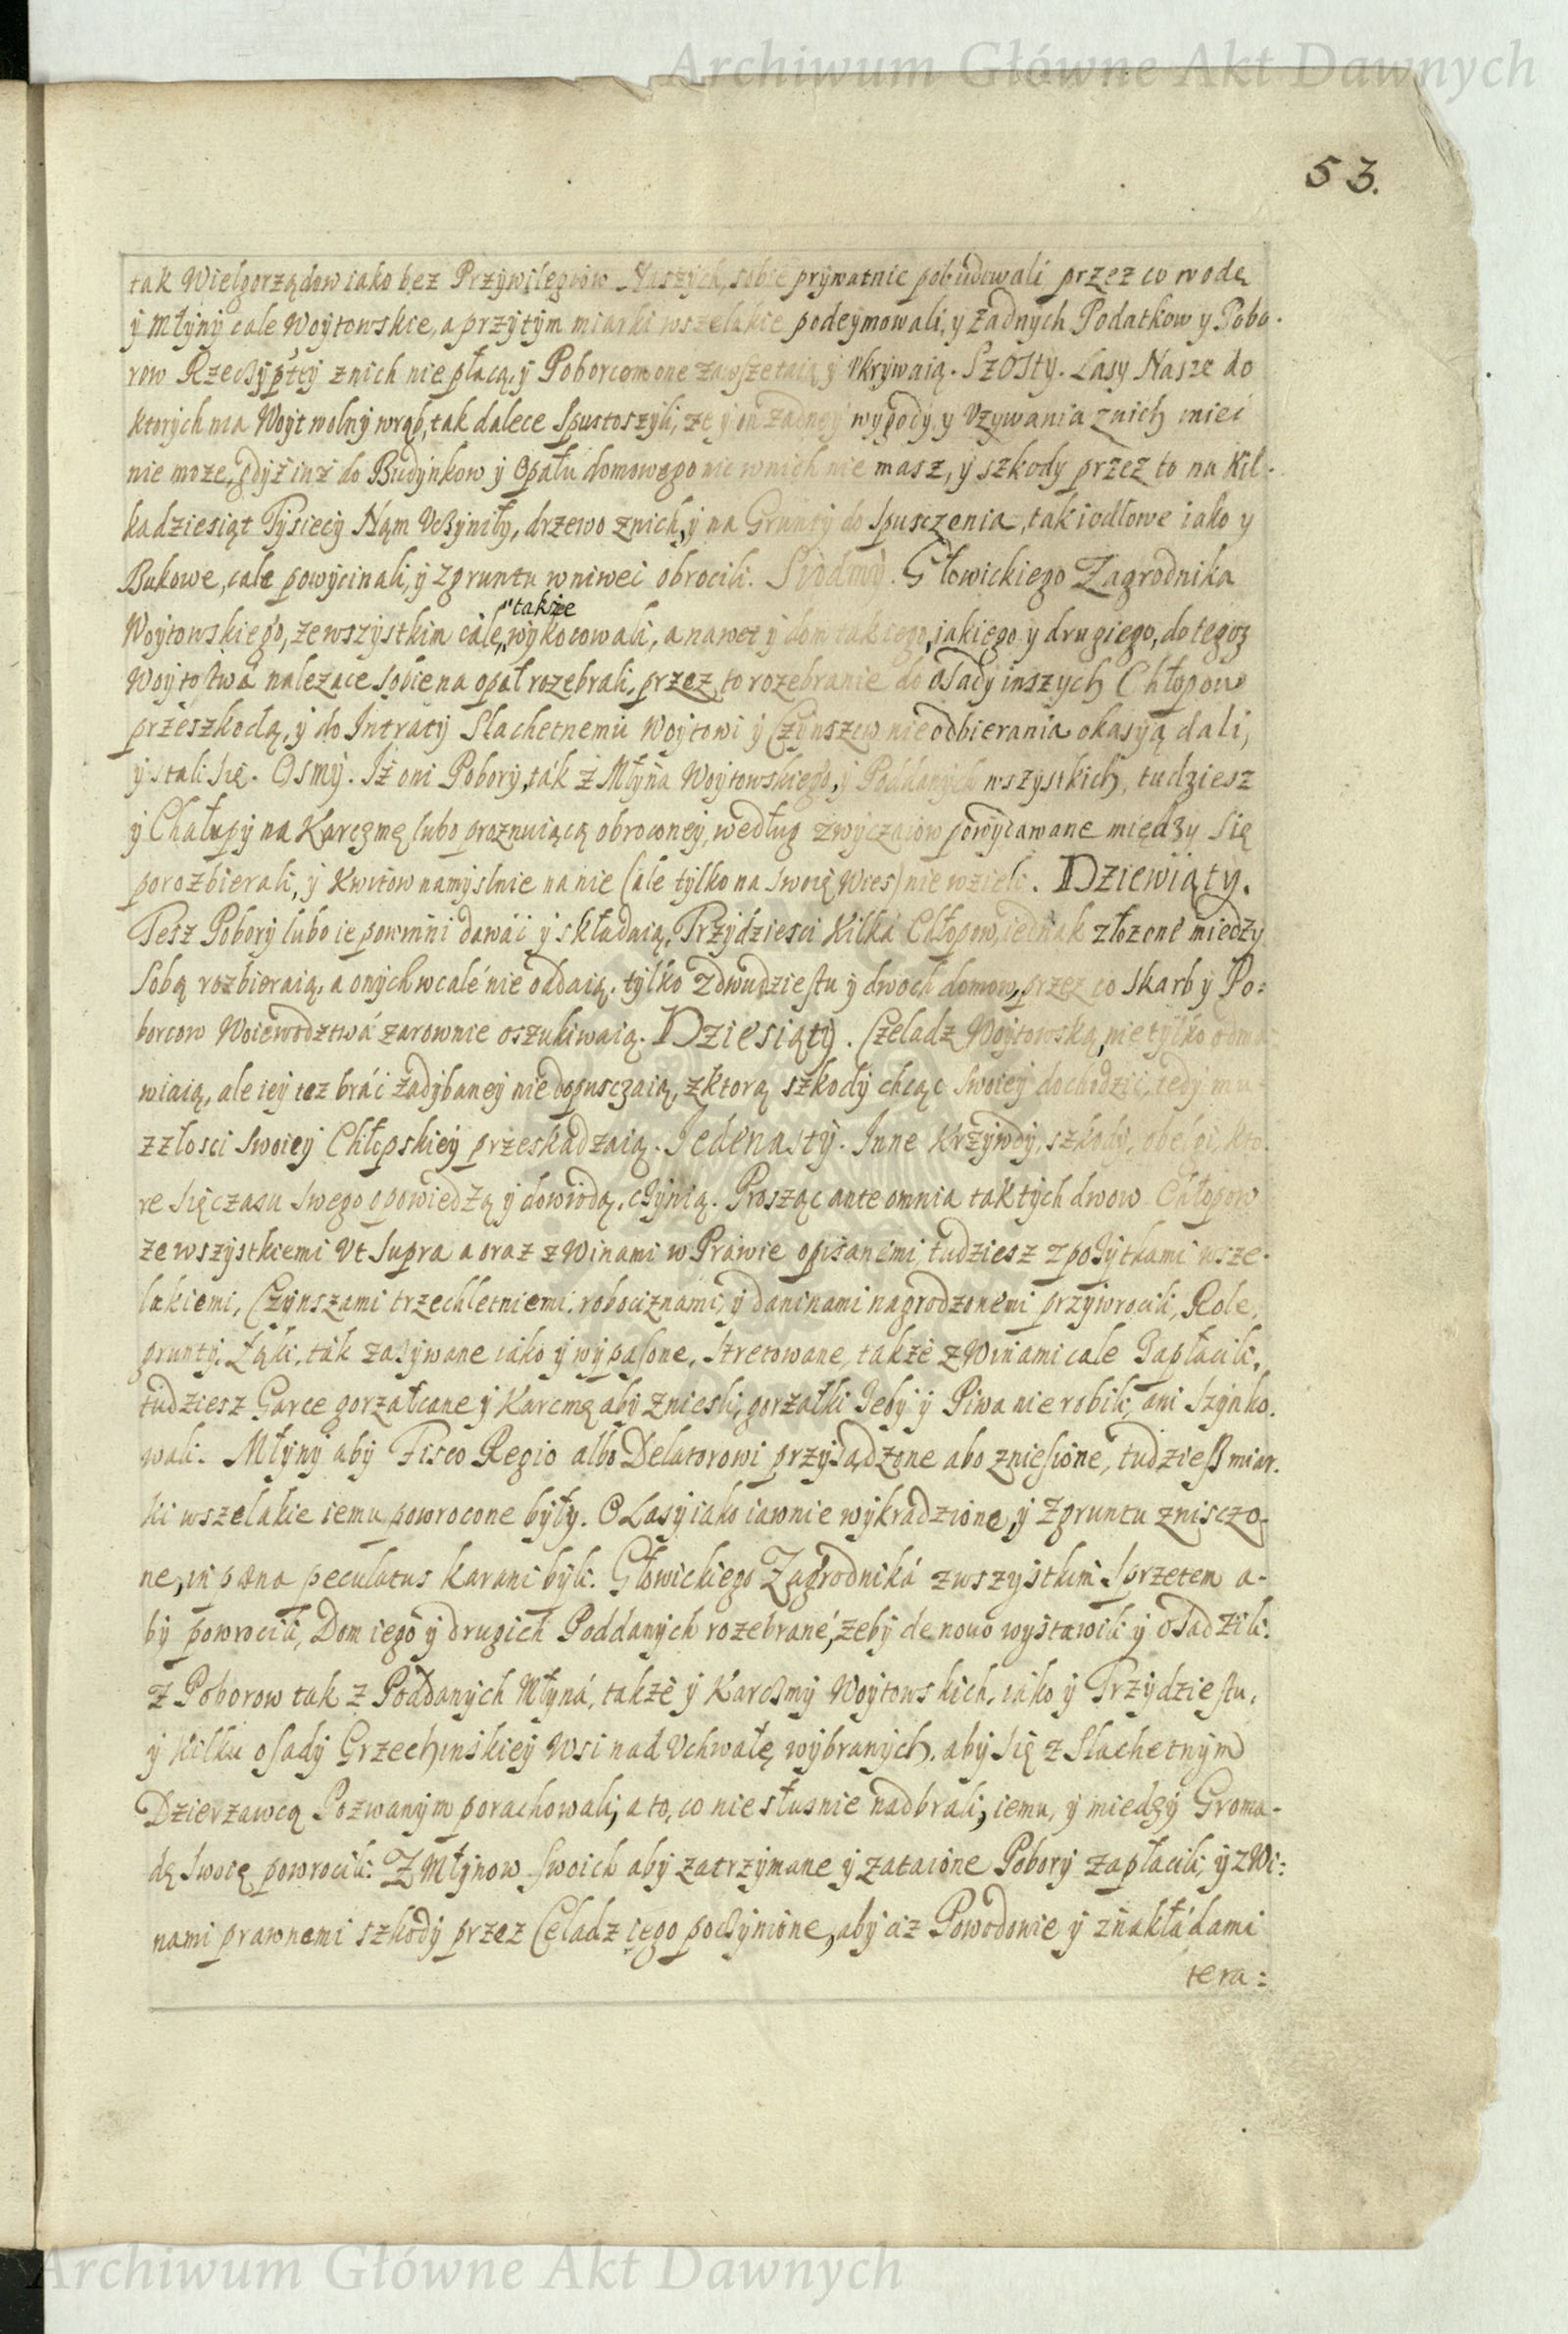 Archiwum Główne Akt Dawnych
53.
tak Wielgorządow iako bez Przywilegiow Naszych, sobie prywatnie pobudowali przez co wodę
ÿ Młÿnÿ cale Woÿtowskie, a przÿtÿm miarki wszelakie podeÿmowali, ÿ żadnÿch Podatkow y Pobo-
row Rzeczÿpltÿ znich nie płacą, ÿ Poborcom one zawsze taią ÿ Vkrÿwaią. Szostÿ. Lasy Nasze do
ktorÿch ma Woÿt wolnÿ wrąb, tak dalece Spustoszÿli, że ÿ on żadneÿ wÿgodÿ, y Vzywania znich mieć
nie moze, gdÿż inż do Budÿnkow ÿ Opału domowego nic wnich nie masz, ÿ szkodÿ przez to na kil-
kadziesiąt Tÿsiecÿ Nąm Vczÿniłÿ, drzewo znich, ÿ na Gruntÿ do spusczenia, tak iodłowe iako y
Bukowe, cale powÿcinali, ÿ zgruntu wniwei obrocili. Siodmÿ. Głowickiego Zagrodnika
także
Woÿtowskiego, ze wszÿstkim cale, wÿkocowali, a nawet ÿ dom tak iego, jakiego y drugiego, do tegoz
Woÿtostwa nalezące sobie na opał rozebrali, przez to rozebranie do osadÿ inszych Chłopow
przeszkodą, ÿ do Intratÿ Slachetnemu Woÿtowi ÿ Czÿnszow nieodbierania okasÿą dali,
ÿ stali się. Osmÿ. Iż oni Poborÿ, ták z Młÿna Woÿtowskiego, ÿ Poddanÿch wszÿstkich, tudziesz
ÿ Chałupÿ na Karczmę lubo proznuiącą obroconeÿ, według zwÿczaiow powÿdawane między się
porozbierali, ÿ Kwitow namÿslnie na nie (ale tÿlko na swoię Wies) nie wzieli. Dziewiątÿ.
Tesz Poborÿ lubo ie powinni dawać ÿ składaią, Trzÿdziesci kilka Chłopow, iednak złozone międzÿ
Sobą rozbieraią, a onÿch wcale nie oddaią, tÿlko z dwudziestu ÿ dwoch domow, przez co skarb ÿ Po=
borcow Woiewodztwá zarownie oszukiwaią. Dziesiątÿ. Czeladz Woÿtowską, nie tÿlko odma
wiaią, ale ieÿ tez bráć zadÿbaneÿ nie dopusczaią, z ktorą szkodÿ chcąc swoieÿ dochodzić, tedÿ mu
z złosci swoieÿ Chłopskieÿ przeskadzaią. Jedenastÿ. Inne krzÿwdÿ, szkodÿ, obelgi, kto-
re się czasu swego opowiedzą ÿ dowiodą, czÿnią. Prosząc ante omnia tak tÿch dwow Chłopow
ze wszÿstkiemi Vt supra a oraz z Winami w Prawie opisanémi, tudziesz z pożÿtkami wsze-
lakiemi, Czÿnszami trzechletniemi, robociznami, ÿ daninami nagrodzonémi przÿwrocili, Role,
gruntÿ, Łąki, ták zażÿwane iako ÿ wÿpasone, stretowane, także z Winami cale Zapłacili,
tudziesz Garce gorzałcane ÿ Karcmę abÿ zniesli, gorzałki żebÿ ÿ Piwa nie robili, ani szÿnko-
wali. Młÿnÿ abÿ Fisco Regio albo Delatorowi przÿsądzone abo zniesione, tudzieß miar-
ki wszelakie iemu powrocone bÿłÿ. O Lasÿ iako iawnie wÿkradzione, ÿ zgruntu zniszczo-
ne, in pæna peculatus karani bÿli. Głowickiego Zagrodniká z wszystkim sprzetem a-
bÿ powrocili, Dom iego ÿ drugich Poddanÿch rozebrané, zebÿ de nouo wÿstawili ÿ osadzili.
Z Poborow tak z Poddanÿch Młÿná, także ÿ Karczmÿ Woÿtowskich, iako ÿ Trzÿdziestu,
ÿ kilku osadÿ Grzechÿnskieÿ Wsi nad Vchwałę wÿbranÿch, abÿ się z Slachetnÿm
Dzierzawcą Pozwanÿm porachowali, a to, co niesłusnie nadbrali, iemu, ÿ międzÿ Groma-
dę swoię powrocili. Z Młÿnow swoich abÿ zatrzÿmane ÿ zataione Poborÿ zapłacili, ÿ z Wi=
nami prawnemi szkodÿ przez Czeladz iego poczÿnione, abÿ ciz Powodowie ÿ z nakładami
tera=
Archiwum Główne Akt Dawnych